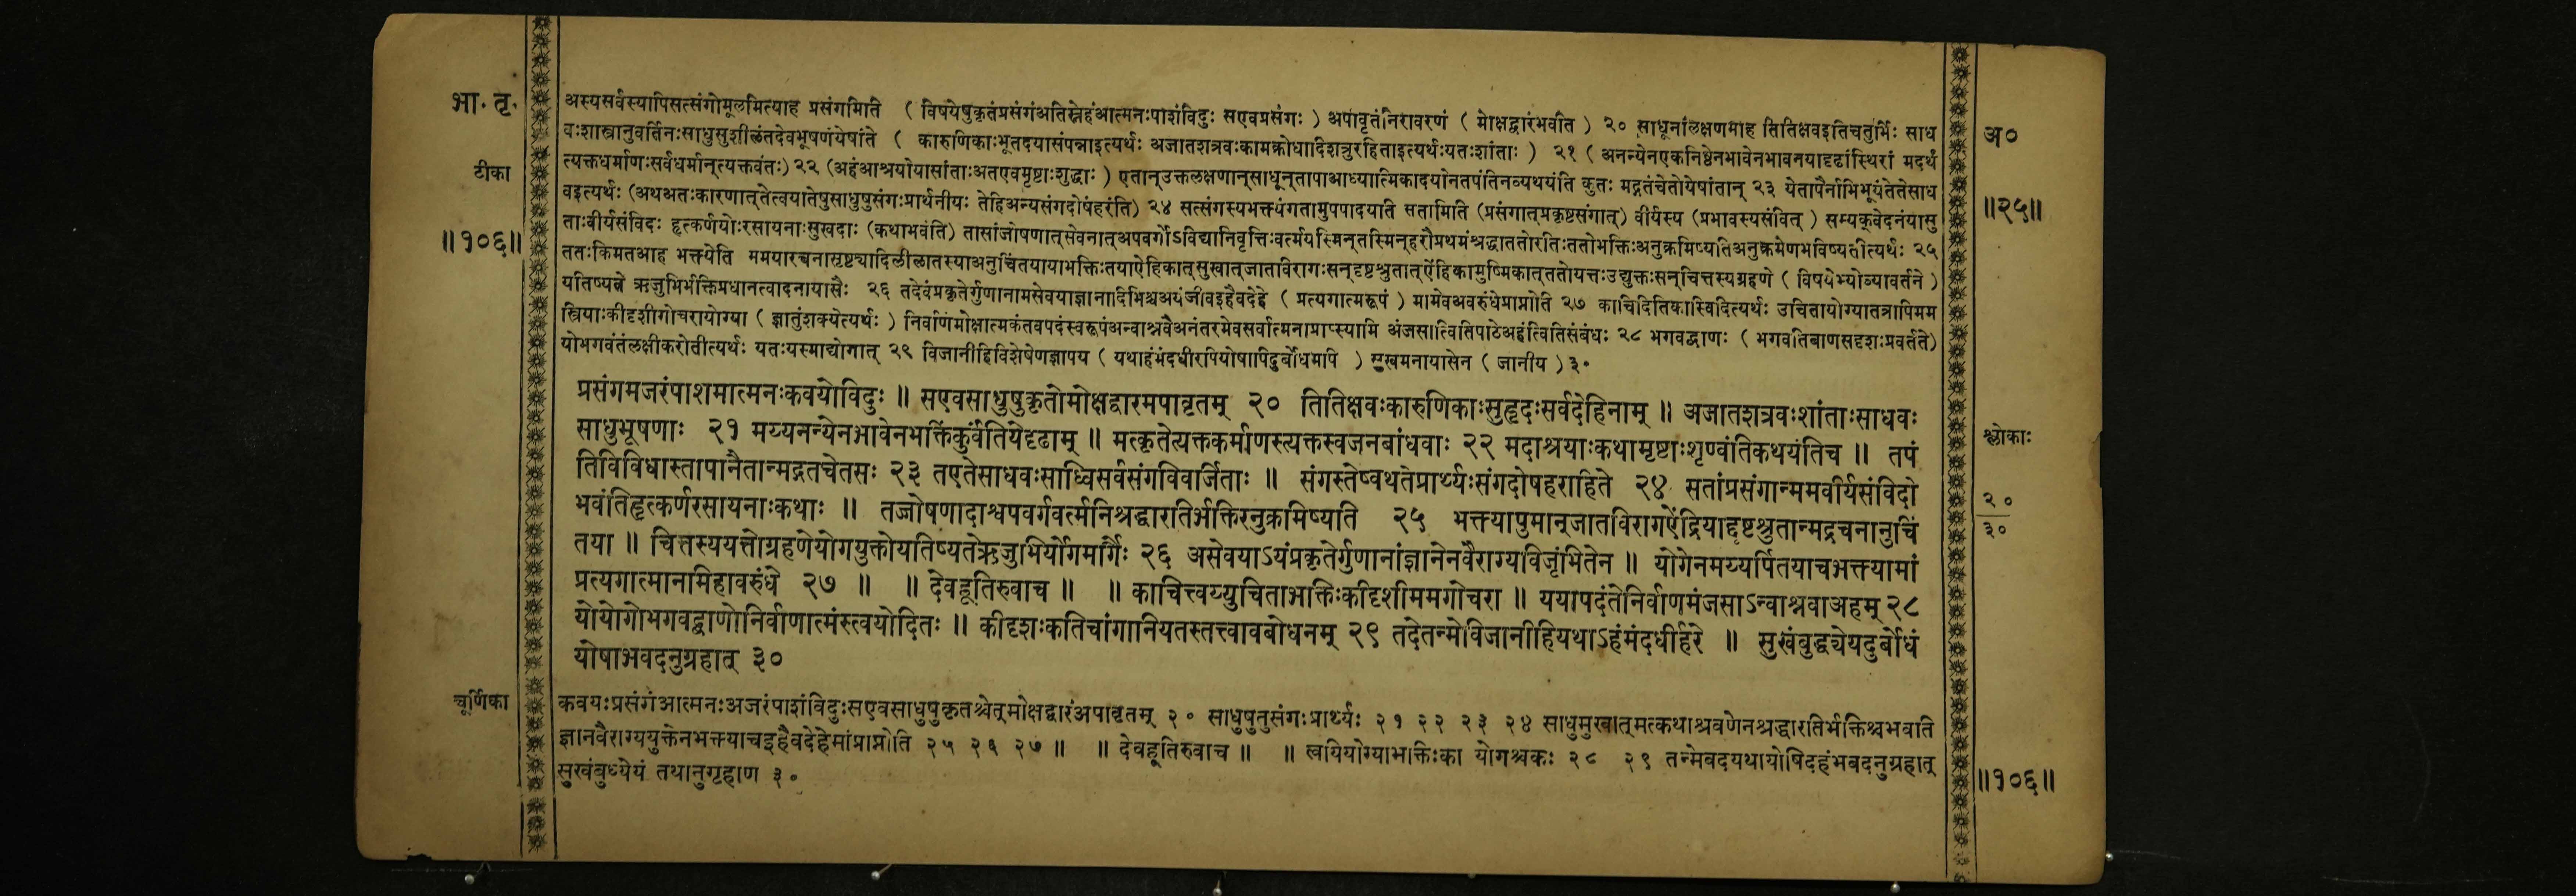 भा. तृ.
टीका
॥१०६॥
अस्यसर्वस्यापिसत्संगोमूलमित्याह प्रसंगमिति ( विषयेषुकृतंप्रसंगंअतिस्नेहंआत्मनःपाशंविदुः सएवप्रसंगः ) अपावृतंनिरावरणं ( मोक्षद्वारंभवति ) २० साधूनांलक्षणमाह तितिक्षवइतिचतुर्भिः साध
वःशास्त्रानुवर्तिनःसाधुसुशीलंतदेवभूषणंयेषांते ( कारुणिकाःभूतदयासंपन्नाइत्यर्थः अजातशत्रवःकामक्रोधादिशत्रुरहिताइत्यर्थःयतःशांताः ) २१ ( अनन्येनएकनिष्ठेनभावेनभावनयादृढांस्थिरां मदर्थं
त्यक्तधर्माणःसर्वधर्मान्त्यक्तवंतः) २२ (अहंआश्रयोयासांताःअतएवमृष्टाःशुद्धाः ) एतान्उक्तलक्षणान्साधून्तापाआध्यात्मिकादयोनतपंतिनव्यथयंति कुतः मद्गतंचेतोयेषांतान् २३ येतापैर्नाभिभूयंतेतेसाध
वइत्यर्थः (अथअतःकारणात्तेत्वयातेषुसाधुषुसंगःप्रार्थनीयः तेहिअन्यसंगदोषंहरंति) २४ सत्संगस्यभक्त्यंगतामुपपादयति सतामिति (प्रसंगात्प्रकृष्टसंगात्) वीर्यस्य (प्रभावस्यसंवित् ) सम्यक्वेदनंयासु
ताःवीर्यसंविदः हृत्कर्णयोःरसायनाःसुखदाः (कथाभवंति) तासांजोषणात्सेवनात्अपवर्गोऽविद्यानिवृत्तिःवर्त्मयस्मिन्तस्मिन्हरौप्रथमंश्रद्धाततोरतिःततोभक्तिःअनुक्रमिष्यतिअनुक्रमेणभविष्यतीत्यर्थः २५
ततःकिमतआह भक्त्येति ममयारचनासृष्ट्यादिलीलातस्याअनुचिंतयायाभक्तिःतयाऐहिकात्सुखात्जाताविरागःसन्दृष्टश्रुतात्ऐहिकामुष्मिकात्ततोयत्तःउद्युक्तःसन्चित्तस्यग्रहणे ( विषयेभ्योव्यावर्तने )
यतिष्यते ऋजुभिर्भक्तिप्रधानत्वादनायासैः २६ तदेवंप्रकृतेर्गुणानामसेवयाज्ञानादिभिश्चअयंजीवइहैवदेहे ( प्रत्यगात्मरूपं ) मामेवअवरुंधेप्राप्नोति २७ काचिदितिकास्विदित्यर्थः उचितायोग्यातत्रापिमम
स्त्रियाःकीदृशीगोचरायोग्या ( ज्ञातुंशक्येत्यर्थः ) निर्वाणंमोक्षात्मकंतवपदंस्वरूपंअन्वाश्नवैअनंतरमेवसर्वात्मनाप्राप्स्यामि अंजसात्वितिपाठेअहंत्वितिसंबंधः २८ भगवद्बाणः ( भगवतिबाणसदृशःप्रवर्तते)
योभगवंतंलक्षीकरोतीत्यर्थः यतःयस्माद्योगात् २९ विजानीहिविशेषेणज्ञापय ( यथाहंमंदधीरपियोषापिदुर्बोधमपि ) सुखमनायासेन ( जानीय ) ३०
प्रसंगमजरंपाशमात्मनःकवयोविदुः ॥ सएवसाधुषुकृतोमोक्षद्वारमपावृतम् २० तितिक्षवःकारुणिकाःसुहृदःसर्वदेहिनाम् ॥ अजातशत्रवःशांताःसाधवः
साधुभूषणाः २१ मय्यनन्येनभावेनभक्तिंकुर्वंतियेदृढाम् ॥ मत्कृतेत्यक्तकर्माणस्त्यक्तस्वजनबांधवाः २२ मदाश्रयाःकथामृष्टाःशृण्वंतिकथयंतिच ॥ तपं
तिविविधास्तापानैतान्मद्गतचेतसः २३ तएतेसाधवःसाध्विसर्वसंगविवर्जिताः ॥ संगस्तेष्वथतेप्रार्थ्यःसंगदोषहराहिते २४ सतांप्रसंगान्ममवीर्यसंविदो
भवंतिहृत्कर्णरसायनाःकथाः ॥ तज्जोषणादाश्वपवर्गवर्त्मनिश्रद्धारतिर्भक्तिरनुक्रमिष्यति २५ भक्त्यापुमान्जातविरागऐंद्रियाद्दृष्टश्रुतान्मद्रचनानुचिं
तया ॥ चित्तस्ययत्तोग्रहणेयोगयुक्तोयतिष्यतेऋजुभिर्योगमार्गैः २६ असेवयाऽयंप्रकृतेर्गुणानांज्ञानेनवैराग्यविजृंभितेन ॥ योगेनमय्यर्पितयाचभक्त्यामां
प्रत्यगात्मानमिहावरुंधे २७ ॥ ॥ देवहूतिरुवाच ॥ ॥ काचित्त्वय्युचिताभक्तिःकीदृशीममगोचरा ॥ ययापदंतेनिर्वाणमंजसाऽन्वाश्नवाअहम् २८
योयोगोभगवद्बाणोनिर्वाणात्मंस्त्वयोदितः ॥ कीदृशःकतिचांगानियतस्तत्त्वावबोधनम् २९ तदेतन्मेविजानीहियथाऽहंमंदधीर्हरे ॥ सुखंबुद्ध्येयदुर्बोधं
योषाभवदनुग्रहात् ३०
चूर्णिका
कवयःप्रसंगंआत्मनःअजरंपाशंविदुःसएवसाधुषुकृतश्चेत्मोक्षद्वारंअपावृतम् २० साधुषुतुसंगःप्रार्थ्यः २१ २२ २३ २४ साधुमुखात्मत्कथाश्रवणेनश्रद्धारतिर्भक्तिश्चभवति
ज्ञानवैराग्ययुक्तेनभक्त्याचइहैवदेहेमांप्राप्नोति २५ २६ २७ ॥ ॥ देवहूतिरुवाच ॥ ॥ त्वयियोग्याभक्तिःका योगश्चकः २८ २९ तन्मेवदयथायोषिदहंभवदनुग्रहात्
सुखंबुध्येयं तथानुगृहाण ३०
अ०
॥२५॥
श्लोकाः
२०
३०
॥१०६॥